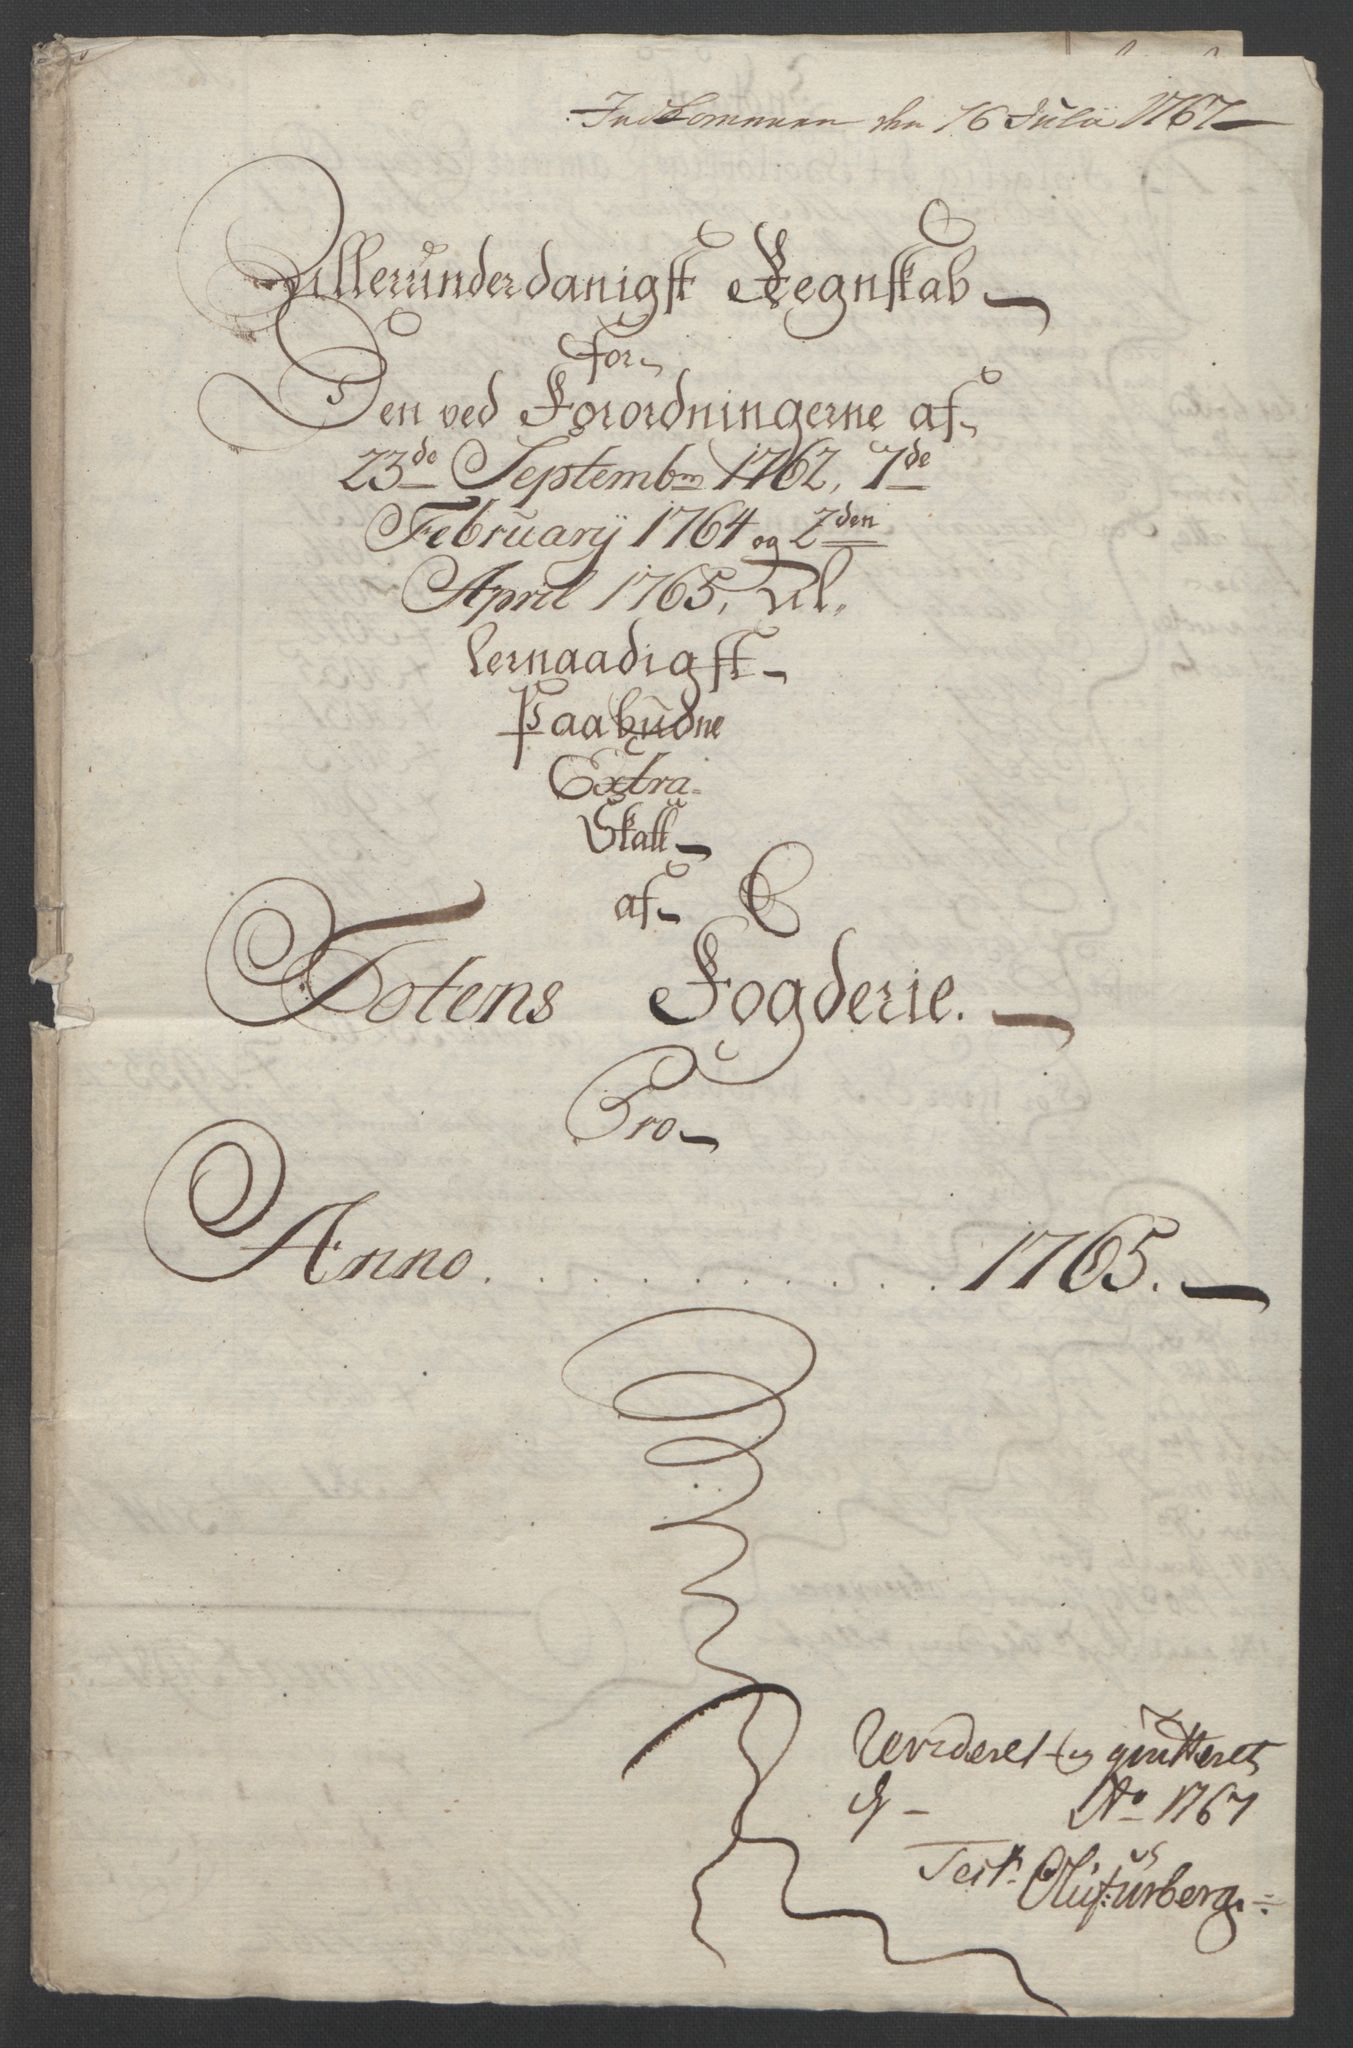 Indkommen den 16 Julii 1767
Allerunderdanigst Regnskab
for
Den ved Forordningerne af
23de Septembr 1762, 7de
Februarij 1764 og 2den
April 1765, Al-
lernaadigst
Paabudne
Extra
Skatt
af
Totens Fogderie.
Pro
Anno . . . . . . . . . . . 1765.
Revideret og qvitteret
Ao 1767
Test: